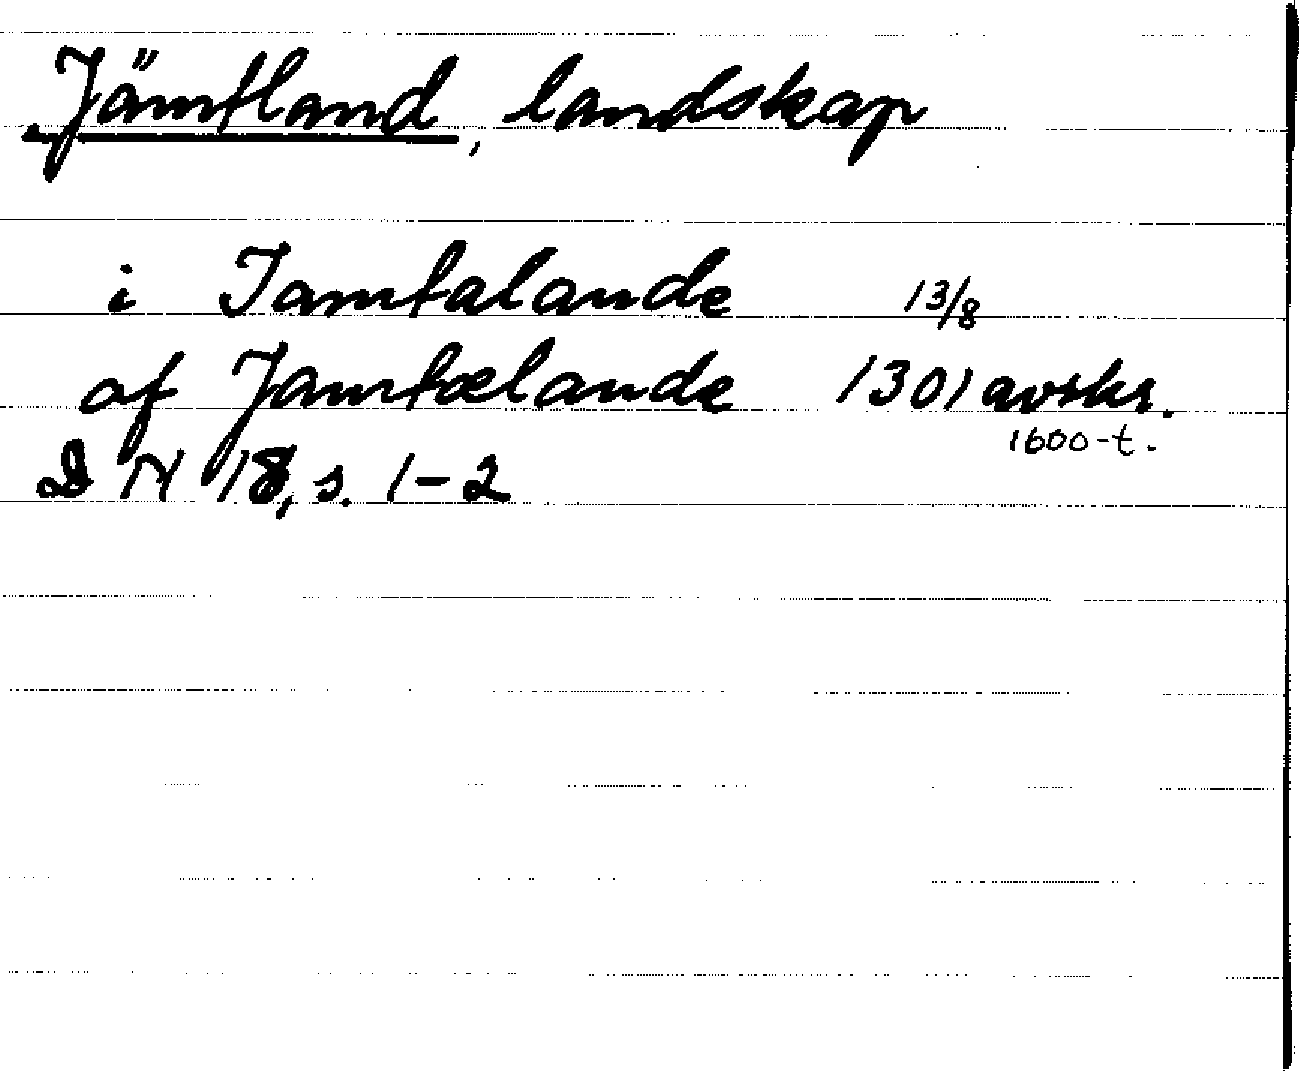 Jämtland, landskap
i Jamtalande 13/8
af Jamtælande 1301 avskr.
1600-t.
DN 18, s. 1-2